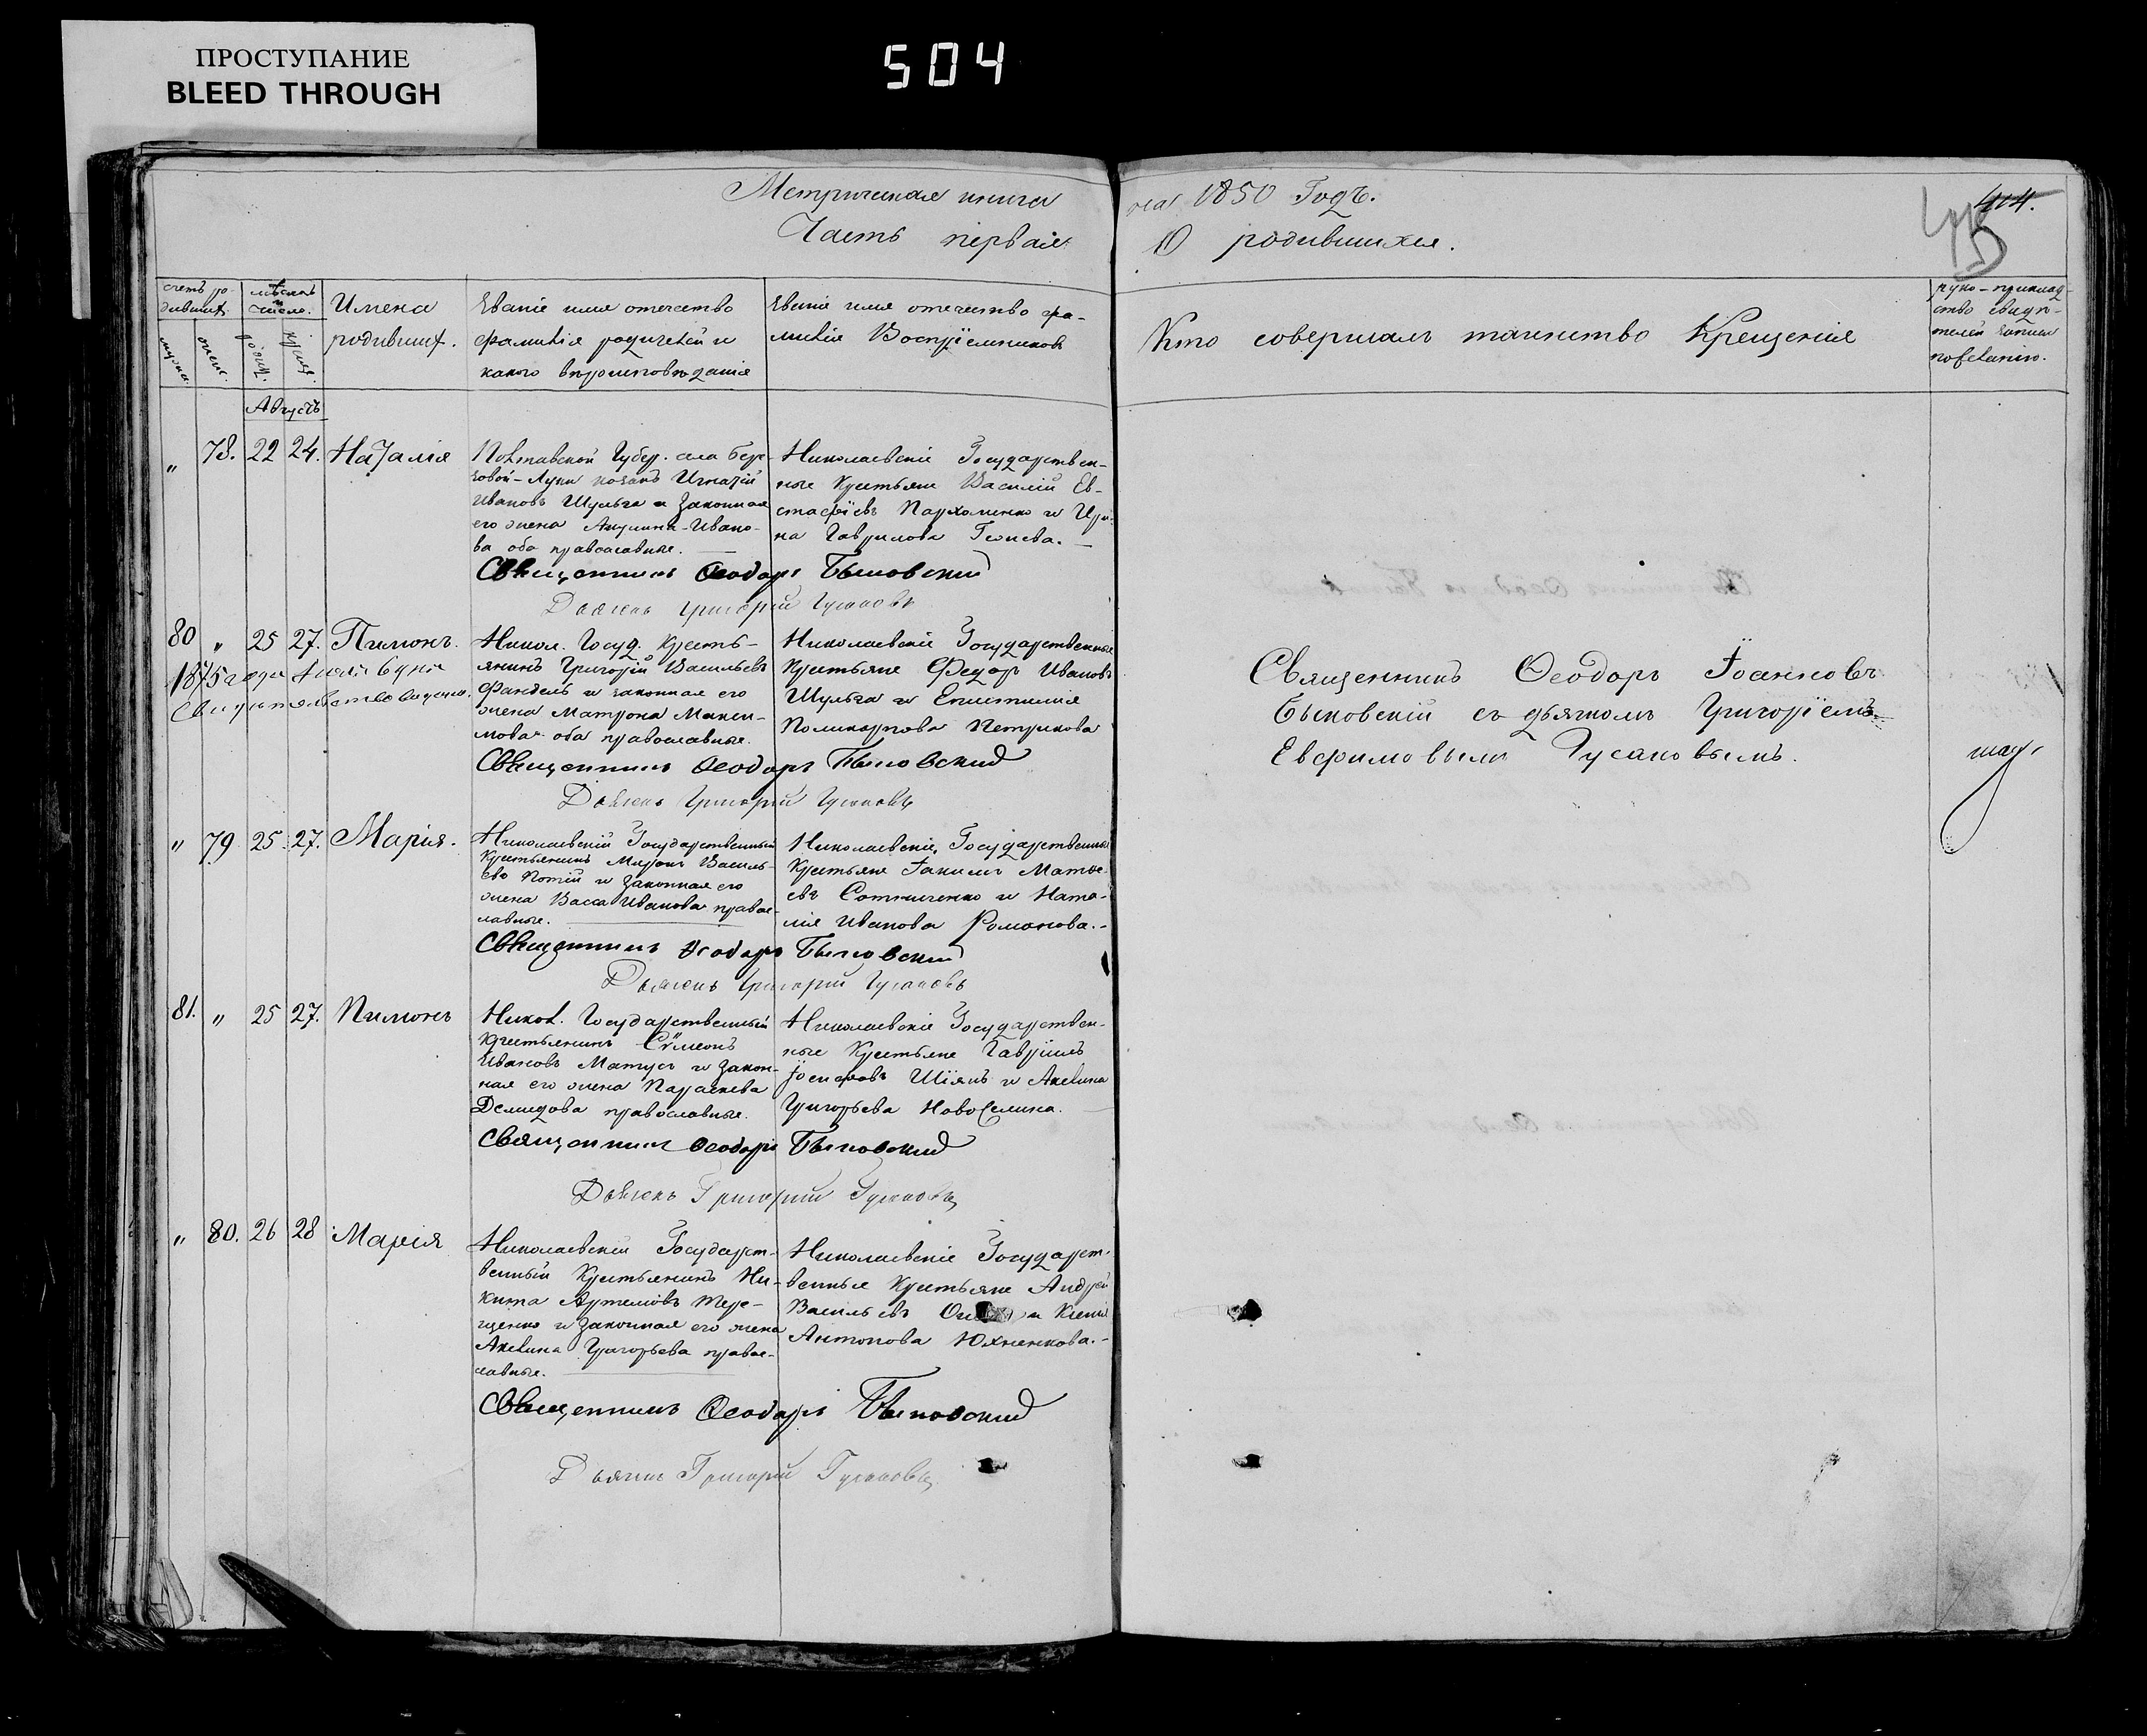 ПРОСТУПАНИЕ
BLEED THROUGH
504
Метрическая книга на 1850 Годъ.
Часть первая О родившихся.
414.
счетъ ро-
дившихс.
мужска
женс.
мѣсяцъ
и
число.
рожд.
крещ.
Имена
родивших.
Званіе имя отчество
фамилія родителей и
какого вѣроисповѣданія
Званіе имя отечество фа-
милія Воспріемниковъ
Кто совершалъ таинство Крещенія
руко-приклад-
ство свидѣ-
телей записи
по желанію.
Августъ
„ 78. 22 24. Наталія
Полтавской Губер. села Бере-
зовой-Луки козакъ Игнатій
Ивановъ Шульга и законная
его жена Акулина Ивано-
ва оба православные.
Николаевскіе Государствен-
ные Крестьяне Василій Ев-
стафіевъ Пархоменко и Ири-
на Гаврилова
Священникъ Ѳеодоръ Быковский
Дьячекъ Григорій Гусаковъ
80 „ 25 27. Пимонъ.
1875 года
Свидѣтельство выдано.
Никол. Госуд. Кресть-
янинъ Григорій Васильевъ
и законная его
жена Матрона Макси-
мова оба православные.
Николаевскіе Государственные
Крестьяне Федоръ Ивановъ
Шульга и Епистимія
Поликарпова Петрикова
Священникъ Ѳеодоръ Быковский
Дьячекъ Григорій Гусаковъ
Священникъ Ѳеодоръ Іоанновъ
Быковскій съ дьячкомъ Григоріемъ
Евфимовымъ Гусаковымъ.
„ 79 25. 27. Марія.
Николаевскій Государственный
Крестьянинъ Миронъ Василь-
евъ и законная его
жена Васса Иванова право-
славные.
Николаевскіе Государственные
Крестьяне Іакимъ Матвѣ-
евъ Сотниченко и Ната-
лія Иванова Романова.
Священникъ Ѳеодоръ Быковский
Дьячекъ Григорій Гусаковъ
81. „ 25 27. Пимонъ
Никол. Государственный
Крестьянинъ Сѵмеонъ
Ивановъ Матусъ и закон-
ная его жена Параскева
Демидова православные.
Николаевскіе Государствен-
ные Крестьяне Гавріилъ
Іосифовъ Шіянъ и Акелина
Григорьева Новоселина.
Священникъ Ѳеодоръ Быковский
Дьячекъ Григорій Гусаковъ
„ 80. 26 28 Марія
Николаевскій Государст-
венный Крестьянинъ Ни-
кита Артемовъ Тере-
щенко и законная его жена
Акелина Григорьева право-
славные.
Николаевскіе Государст-
венные Крестьяне Андрей
Васильевъ и Ксенія
Антонова Юхненкова.
Священникъ Ѳеодоръ Быковский
Дьячекъ Григорій Гусаковъ